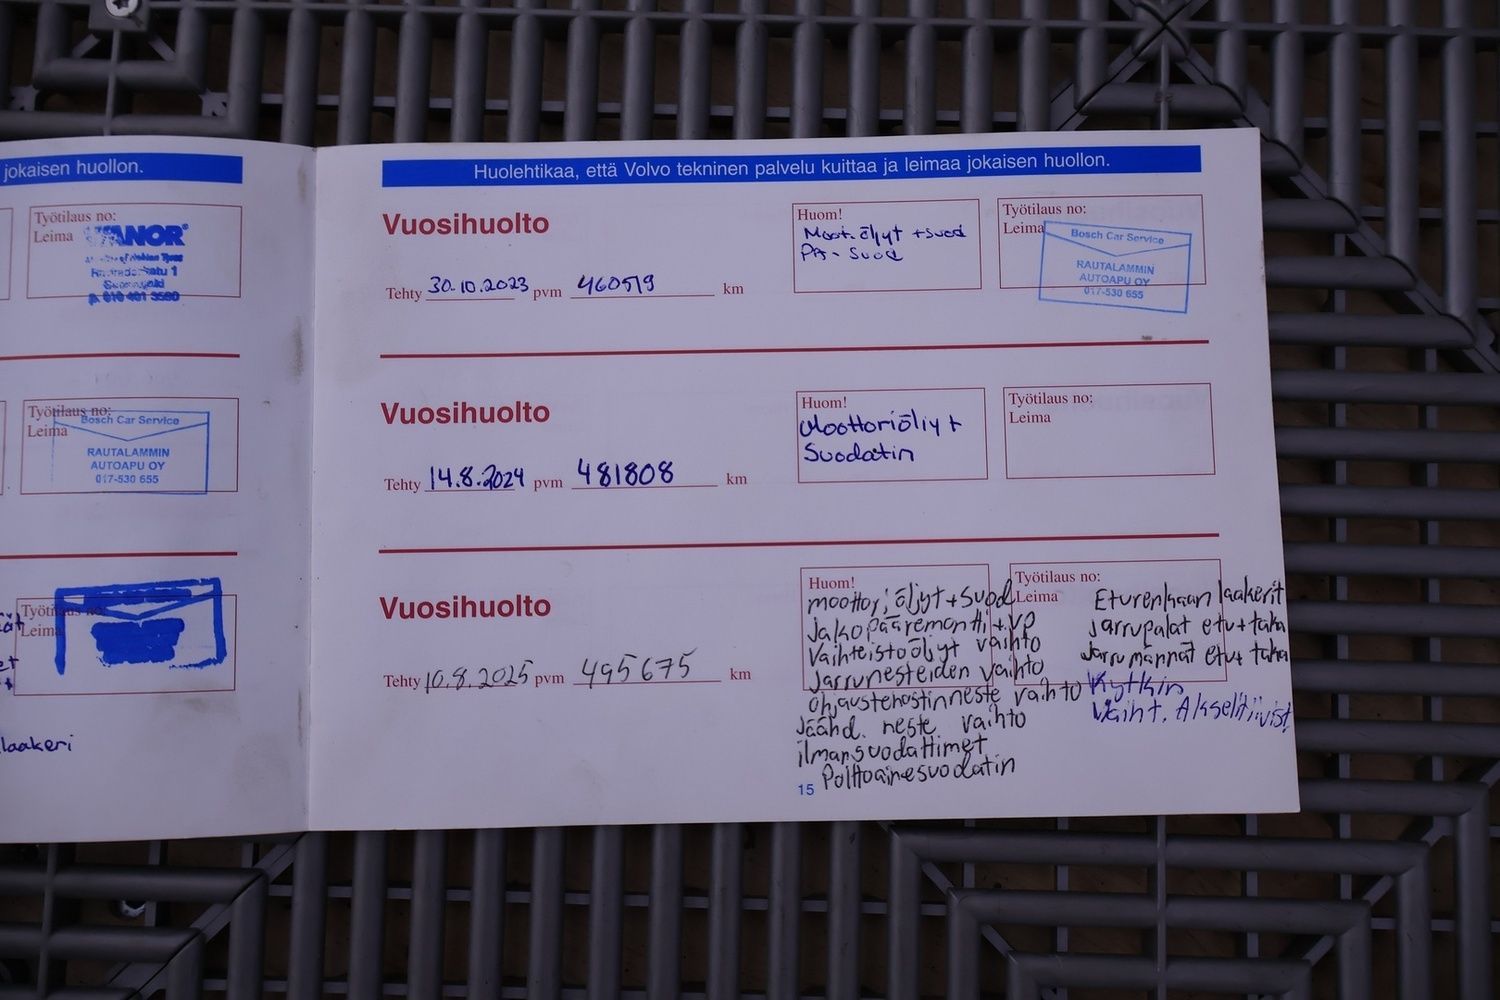 jokaisen huollon.
Työtilaus no:
Leima
VIANOR
p. 010 401 3580
Työtilaus no:
Leima
Bosch Car Service
RAUTALAMMIN
AUTOAPU OY
017-530 655
Työtilaus no:
Leima
laakeri
Huolehtikaa, että Volvo tekninen palvelu kuittaa ja leimaa jokaisen huollon.
Vuosihuolto
Tehty 30.10.2023 pvm 460519 km
Huom!
Moot.öljyt +suod
PA-Suod
Työtilaus no:
Leima
Bosch Car Service
RAUTALAMMIN
AUTOAPU OY
017-530 655
Vuosihuolto
Tehty 14.8.2024 pvm 481808 km
Huom!
Moottoriöljyt
Suodatin
Työtilaus no:
Leima
Vuosihuolto
Tehty 10.8.2025 pvm 495675 km
Huom!
moottoriöljyt+suod
Jakopääremontti+vp
Vaihteistoöljyt vaihto
Jarrunesteiden vaihto
Ohjaustehostinneste vaihto
Jäähd. neste vaihto
ilmansuodattimet
Polttoainesuodatin
Työtilaus no:
Leima
Eturenkaan laakerit
Jarrupalat etu+taka
Jarrumännät etu+taka
Kytkin
Vaiht. Akselitiivist.
15